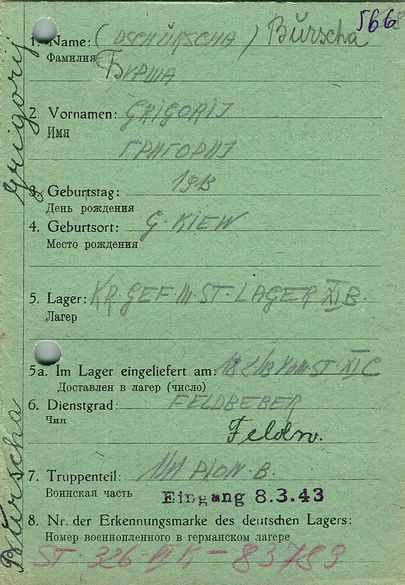 566
1. Name: (DSCHÜRSCHA) Bŭrscha
Фамилия БУРША
2. Vornamen: GRIGORIJ
Имя
ГРИГОРИЈ
3. Geburtstag: 1913
День рождения
4. Geburtsort: G. KIEW
Место рождения
5. Lager: KR. GEF. M. ST. LAGER XI B.
Лагер
5a. Im Lager eingeliefert am: ST. XI C
Доставлен в лагер (число)
6. Dienstgrad: FELDBEBER
Чин
Feldw.
7. Truppenteil: PION. B.
Воинская часть Eingang 8.3.43
8. Nr. der Erkennungsmarke des deutschen Lagers:
Номер военнопленного в германском лагере
ST-326-VI K-83789
Bŭrscha Grigorij